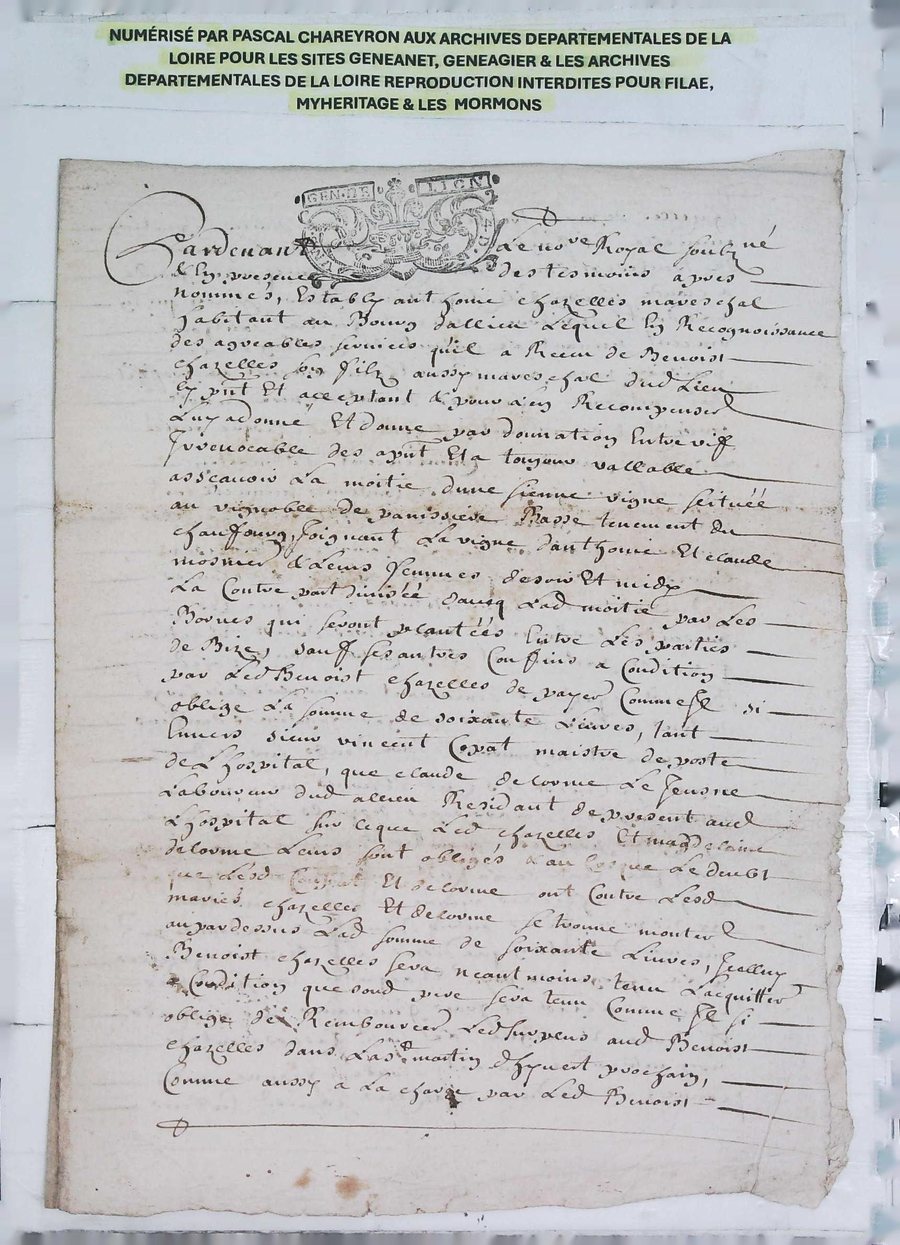 NUMÉRISÉ PAR PASCAL CHAREYRON AUX ARCHIVES DEPARTEMENTALES DE LA
LOIRE POUR LES SITES GENEANET, GENEAGIER & LES ARCHIVES
DEPARTEMENTALES DE LA LOIRE REPRODUCTION INTERDITES POUR FILAE,
MYHERITAGE & LES MORMONS
GEN·DE LION
Pardevant Le no.re Royal soubz.né
& En presence des tesmoins apres
nommés, Estably anthoine chazelles mareschal
habitant au Bourg dallieu Lequel En Recognoissance
des agreables services qu'il a Receu de Benoist
chazelles son filz aussy mareschal dud Lieu
Ey pnt Et acceptant & pour a'en Recompenser
Luy a donné Et donne par donnation Entre vif
Irrevocable des apnt Et a toujour vallable
assçauoir La moitié d'une sienne vigne seituéé
au vignoble de panissiere Basse tenement du
chauffourg, Joignant La vigne d'anthoine Et claude
mosnier & Leurs femmes de soir Et midy
La Contre part diuiséé dauecq Lad moitié par Les
Bornes qui seront plantéés Entre Les parties
de Bize, sauf ses autres Confins a Condition
par Led Benoist chazelles de payer Comme Jl si
oblige La somme de soixante Liures, tant
Enuers sieur vincent Copat maistre de poste
de Lhospital, que claude delorme Le Jeusne
Laboureur dud allieu Residant de present aud
Lhospital sur lique Led chazelles Et magdelaine
delorme Leurs sont obligés & au cas que Le deubt
que Lesd Et delorme ont Contre Lesd
mariés chazelles Et delorme se trouue monter
au pardessus Lad somme de soixante Liures, Jcelluy
Benoist chazelles sera neantmoins tenu Lacquitter
a Condition que sond pere sera tenu Comme Jl si
oblige de Rembourcer Led surplus aud Benoist
chazelles dans La s.t martin dhyuert prochain,
Comme aussy a La charge par Led Benoist